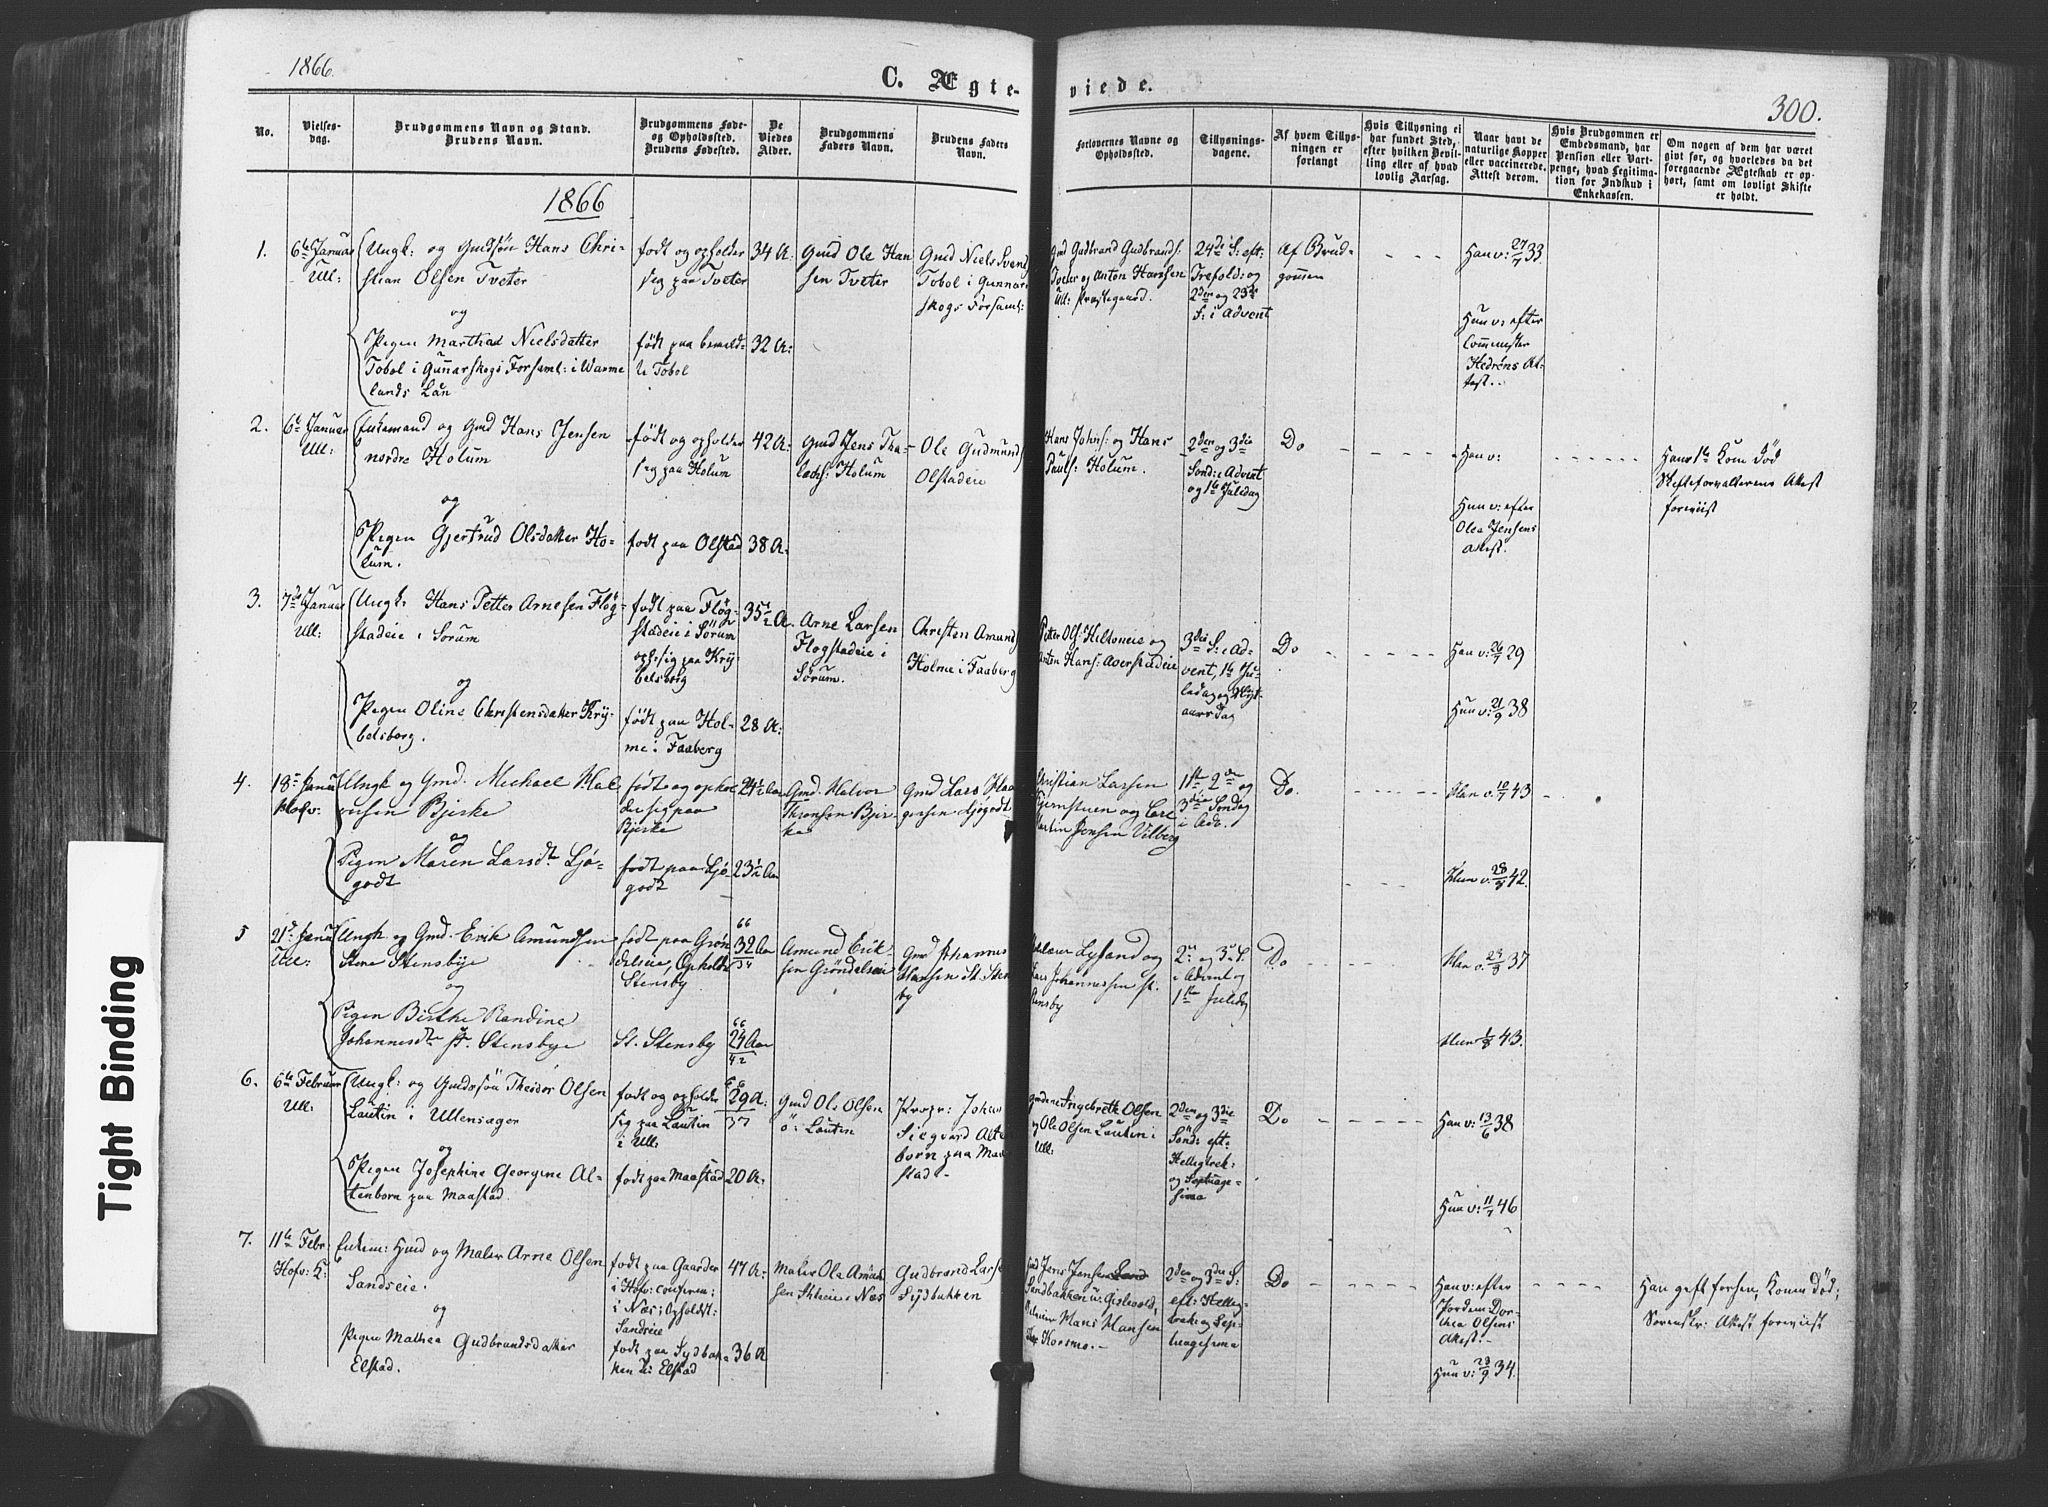 1866.
C. Ægte-
viede.
300.
No.
Vielses-
dag.
Brudgommens Navn og Stand.
Brudens Navn.
Brudgommens Føde-
og Opholdssted.
Brudens Fødested.
De
Viedes
Alder.
Brudgommens
Faders Navn.
Brudens Faders
Navn.
Forlovernes Navne og
Opholdssted.
Tillysnings-
dagene.
Af hvem Tillys-
ningen er
forlangt
Hvis Tillysning ei
har fundet Sted,
efter hvilken Bevil-
ling eller af hvad
lovlig Aarsag.
Naar havt de
naturlige Kopper
eller vaccinerede.
Attest derom.
Hvis Brudgommen er
Embedsmand, har
Pension eller Vart-
penge, hvad Legitima-
tion for Indskud i
Enkekassen.
Om nogen af dem har været
gift før, og hvorledes da det
foregaaende Ægteskab er op-
hørt, samt om lovligt Skifte
er holdt.
1866
1.
6te Januar
Ull:
Ungk: og Gmdsøn Hans Chri-
stian Olsen Tveter
og
Pigen Marthea Nielsdatter
Tobol i Gunnarskogs Forsaml: i Warme
lands Län
født og opholder
sig paa Tveter
født paa bemeld-
te Tobol
34 A:
32 A:
Gmd Ole Han
sen Tveter
Gmd Niels Svend
Tobol i Gunnar
skogs Forsaml:
Gmd Gudbrand Gudbrands:
Tveter og Anton Hanssen
Ull: Præstegaard.
24de S: eft:
Trefold: og
2den og
S: i Advent
Af Brud-
gommen
Han v: 27/7 33
Hun v: efter
Comminister
Hedréns At-
test..
2.
6te Januar
Ull:
Enkemand og Gmd Hans Jensen
nordre Holum
og
Pigen Gjertrud Olsdatter Ho-
lum.
født og opholder
sig paa Holum
født paa Olstad
42 A:
38 A:
Gmd Jens Tha-
lachs: Holum
Ole Gudmunds
Olstadeie
Hans Johns: og Hans
Pauls: Holum.
2den og 3die
Sønd: i Advent
og 1te Juledag
Do
Han v:
Hun v: efter
Olea Jensens
Attest.
Hans 1te Kone død
Skifteforvalterens Attest
foreviist
3.
7de Januar
Ull:
Ungk: Hans Petter Arnesen Flög-
stadeie i Sorum
og
Pigen Oline Christensdatter Kry-
belsborg.
født paa Flög-
stadeie i Sörum
oph: sig paa Kry-
belsborg
født paa Hol-
me i Faaberg
35½ A.
28 A:
Arne Larsen
Flogstadeie i
Sorum.
Christen Amund
Holme i Faaberg
Petter Ols: Hiltoneie og
Anton Hans: Averstadeie
3die S: i Ad-
vent, 1te Ju-
ledag og Nyt-
aarsdag
Do
Han v: 26/7 29
Hun v: 21/9 38
4.
18 Janu
Hofv:
Ungk og Gmd. Michael Hal
vorsen Bjerke
og
Pigen Maren Larsdtr Ljø-
godt
født og ophol
der sig paa
Bjerke
født paa Ljø-
godt
24½ Aar
23½ Aar
Gmd. Halvor
Thronsen Bjer-
ke
Gmd Lars Haa
gensen Ljøgodt
Christian Larsen
Hjernstuen og Carl
Martin Jensen Vilberg
1ste 2den og
3die Søndag
i Adv.
Do.
Han v. 10/7 43
Hun v. 28/8 42.
5
21de Janu
Ull:
Ungk. og Gmd. Erik Amundsen
Store Stensbye
og
Pigen Birthe Randine
Johannesdtr St. Stensbye
født paa Grøn
delseie, Opholder
Stensby
St. Stensby
66
32 Aar
34
66
24 Aar
42
Amund Erik-
sen Gröndalseie
Gmd Johannes
Hansen St. Stens
by
Lysand og
Lars Johannessen St.
Stensby
2den og 3die S.
i Advent og
1ste Juledag
Do
Han v. 24/9 37
Hun 1/8 43.
6.
6te Februar
Ull:
Ungk: og Gmdssön Theodor Olsen
Lautin i Ullensager
og
Pigen Josephine Georgine Al-
tenborn paa Maastad.
født og opholder
sig paa Lautin
i Ull:
født paa Maastad
66
29 A:
37
20 A:
Gmd Ole Olsen
ö: Lautin
Propr: Johan
Siegvard Alten
born paa Maa
stad.
Gmdene Ingebreth Olsen
og Ole Olsen Lautin i
Ull:
2den og 3die
Sönd: eft:
Helligtrek:
og Septuage-
sima
Do
Han v: 13/6 38
Hun v: 11/7 46
7.
11te Febr:
Hofv: K:
Enkem: Hmd og Maler Arne Olsen
Sandseie.
og
Pigen Mathea Gudbrandsdatter
Elstad.
født paa Gaarder
i Hofv: confirm:
i Næs; Opholdst:
Sandseie
født paa Sydbak-
ken u: Elstad
47 A:
36 A
Maler Ole Amund
sen Skheie i Næs
Gudbrand Larse
Sydbakken
Gmd Jens Jensen
Sandbakken u: Gislevold,
Hans Hansen
Korsmo.-
2den og 3die S:
eft: Hellig-
trek: og Sep-
tuagesima
Do
Han v: efter
Jordem: Dor-
thea Olsens
Attest.-
Hun v: 29/9 34.
Han gift forhen, Konen død;
Sorenskr: Attest foreviist
Tight Binding